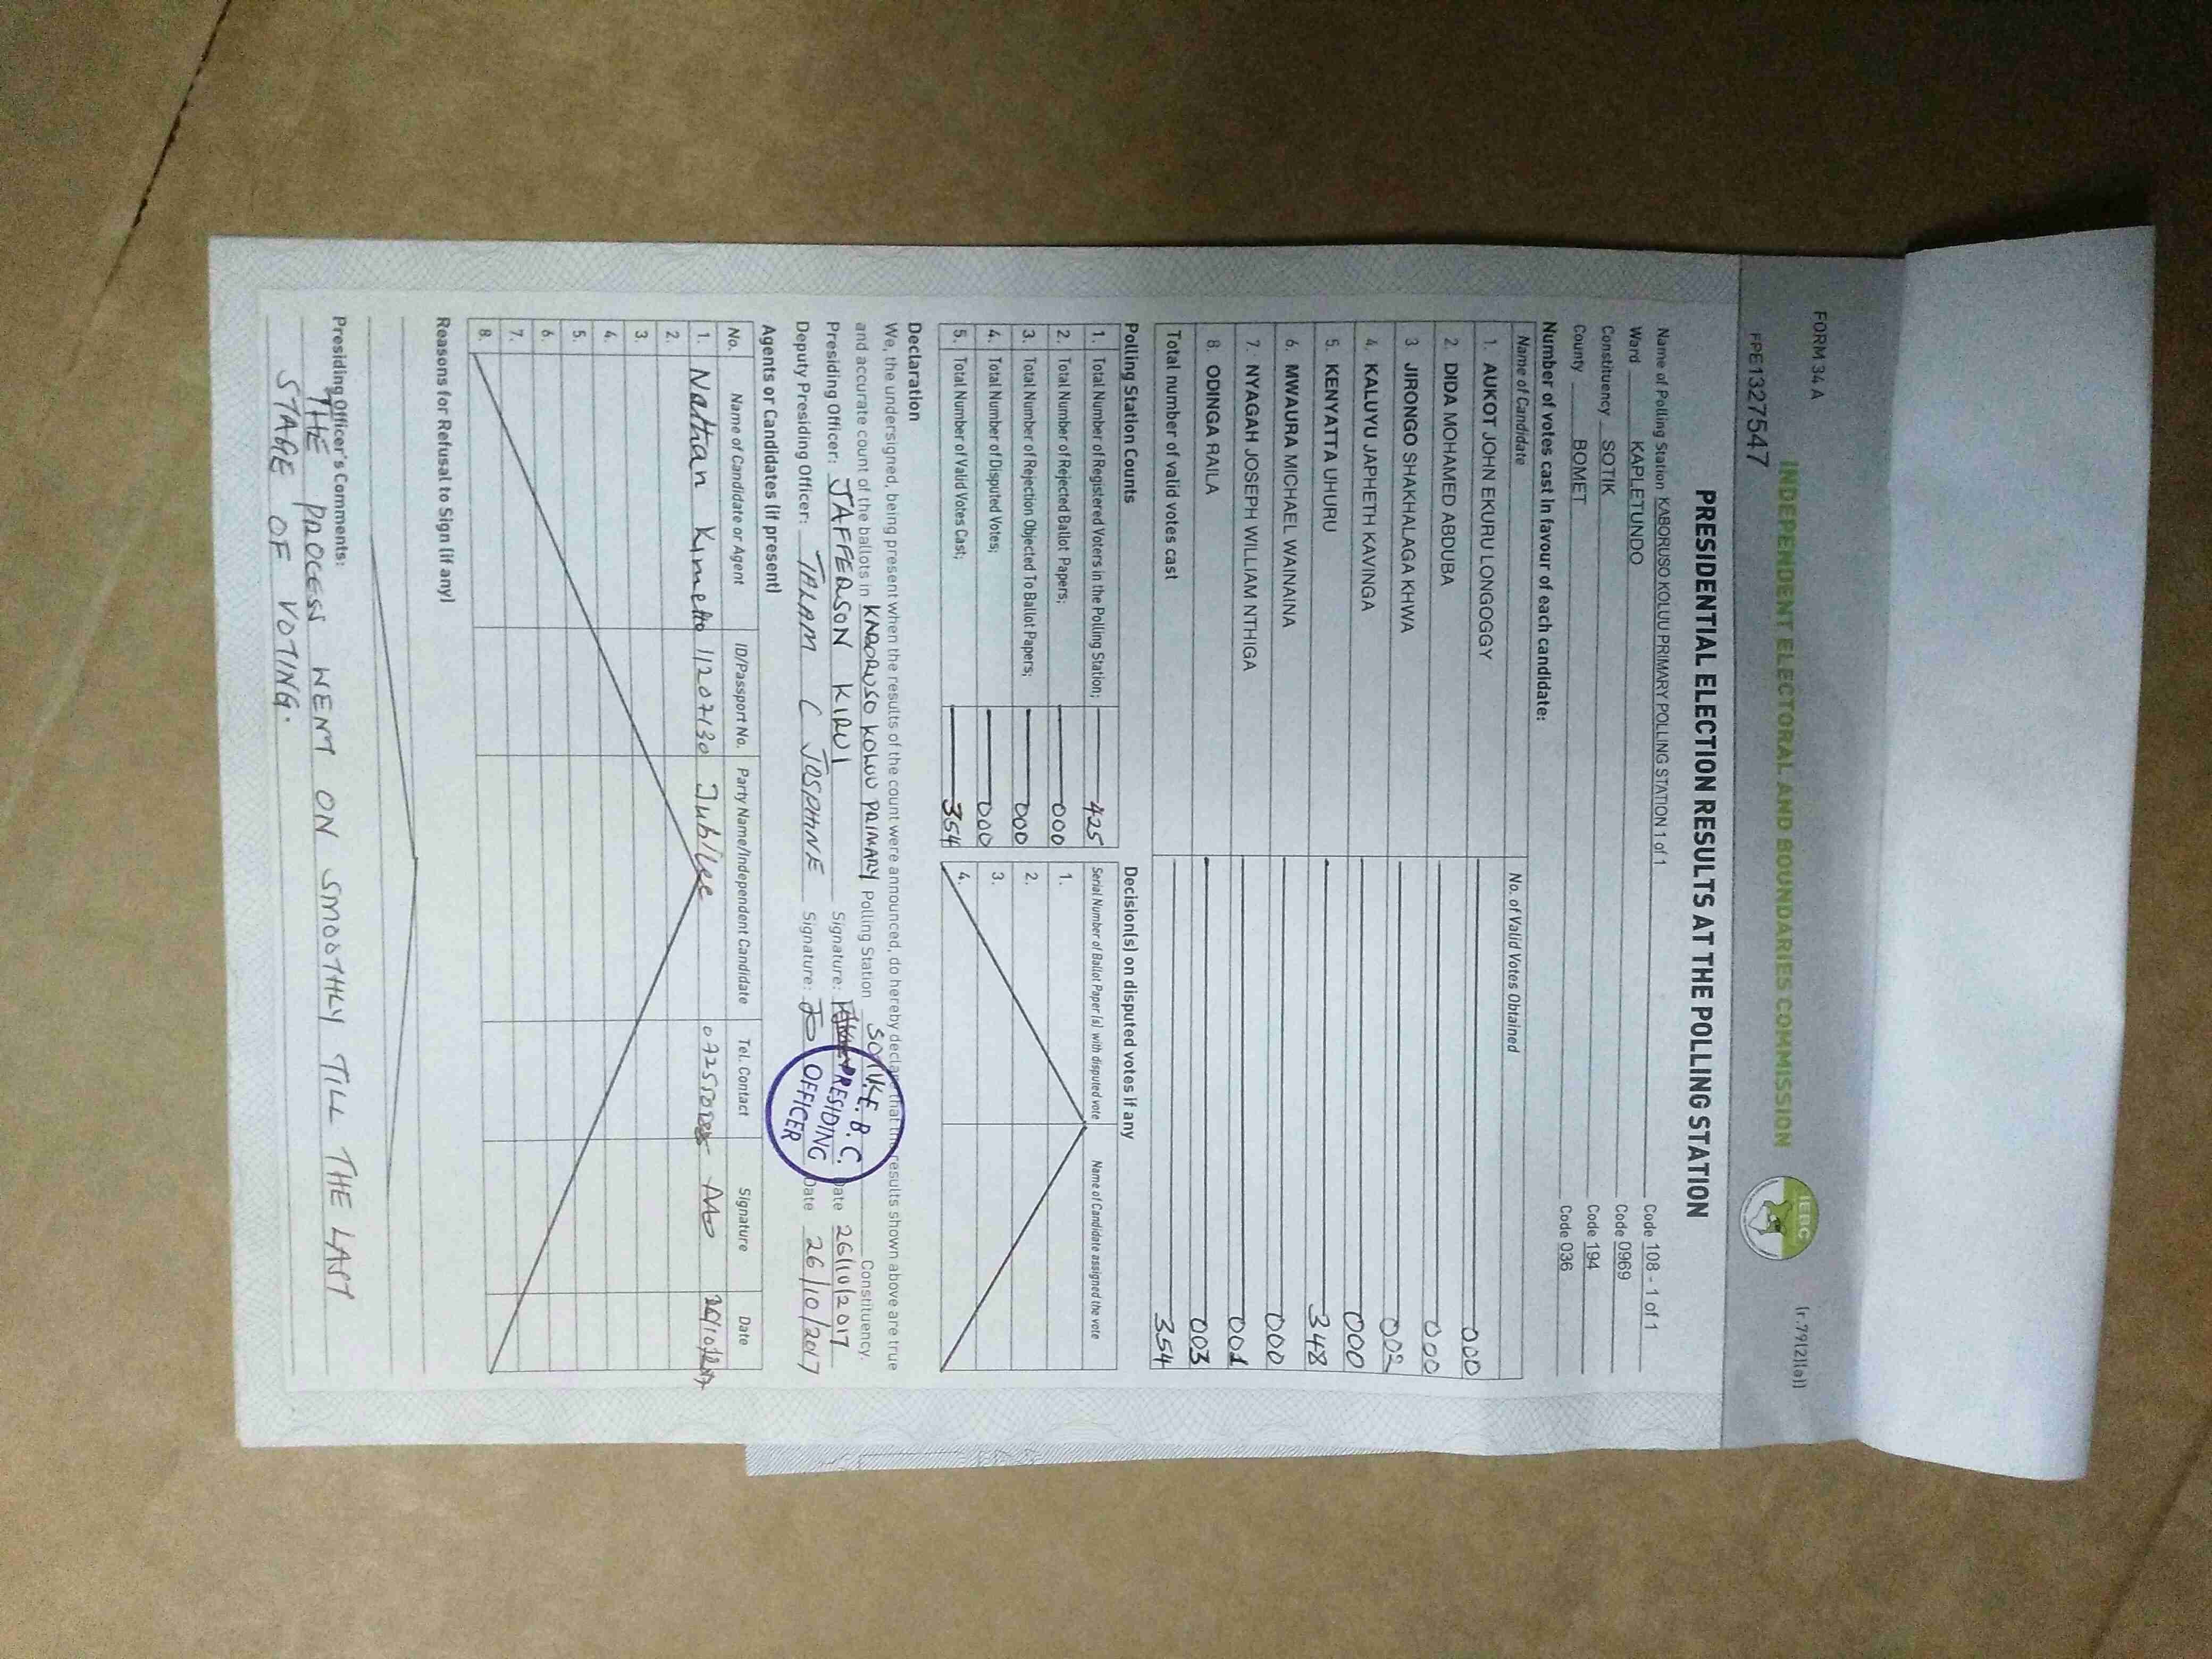 FORM 34 A
(r.79(2)(a))
FPE1327547
INDEPENDENT ELECTORAL AND BOUNDARIES COMMISSION
IEBC
PRESIDENTIAL ELECTION RESULTS AT THE POLLING STATION
Name of Polling Station KABORUSO KOLUU PRIMARY POLLING STATION 1 of 1 Code 108 - 1 of 1
Ward KAPLETUNDO Code 0969
Constituency SOTIK Code 194
County BOMET Code 036
Number of votes cast in favour of each candidate:
Name of Candidate No. of Valid Votes Obtained
1. AUKOT JOHN EKURU LONGOGGY 000
2. DIDA MOHAMED ABDUBA 000
3 JIRONGO SHAKHALAGA KHWA 002
4. KALUYU JAPHETH KAVINGA 000
5. KENYATTA UHURU 348
6. MWAURA MICHAEL WAINAINA 000
7. NYAGAH JOSEPH WILLIAM NTHIGA 001
8. ODINGA RAILA 003
Total number of valid votes cast 354
Polling Station Counts
1. Total Number of Registered Voters in the Polling Station; 425
2. Total Number of Rejected Ballot Papers; 000
3. Total Number of Rejection Objected To Ballot Papers; 000
4. Total Number of Disputed Votes; 000
5. Total Number of Valid Votes Cast; 354
Decision(s) on disputed votes if any
Serial Number of Ballot Paper(s) with disputed vote Name of Candidate assigned the vote
1.
2.
3.
4.
Declaration
We, the undersigned, being present when the results of the count were announced, do hereby declare that the results shown above are true
and accurate count of the ballots in KABORUSO KOLUU PRIMARY Polling Station SOTIK Constituency.
Presiding Officer: JAFFERSON KIRUI Signature: Date 26/10/2017
Deputy Presiding Officer: TALAM C JOSPHINE Signature: Date 26/10/2017
I.E.B.C.
PRESIDING
OFFICER
Agents or Candidates (if present)
No. Name of Candidate or Agent ID/Passport No. Party Name/Independent Candidate Tel. Contact Signature Date
1. Nathan Kimetto 11207130 Jubilee
2.
3.
4.
5.
6.
7.
8.
Reasons for Refusal to Sign (if any)
Presiding Officer's Comments:
THE PROCESS WENT ON SMOOTHLY TILL THE LAST
STAGE OF VOTING.